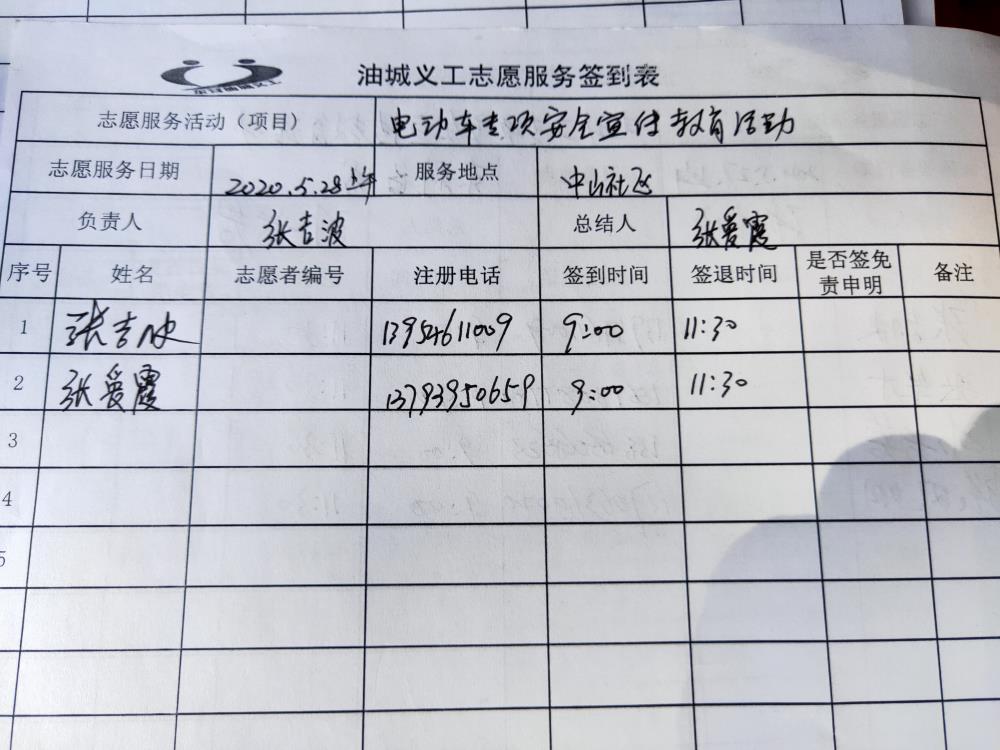 油城义工志愿服务签到表
志愿服务活动（项目） 电动车专项安全宣传教育活动
志愿服务日期 2020.5.28上午 服务地点 中山社区
负责人 张吉波 总结人 张爱霞
序号 姓名 志愿者编号 注册电话 签到时间 签退时间 是否签免责申明 备注
1 张吉波 13954611009 9:00 11:30
2 张爱霞 13793950659 9:00 11:30
3
4
5